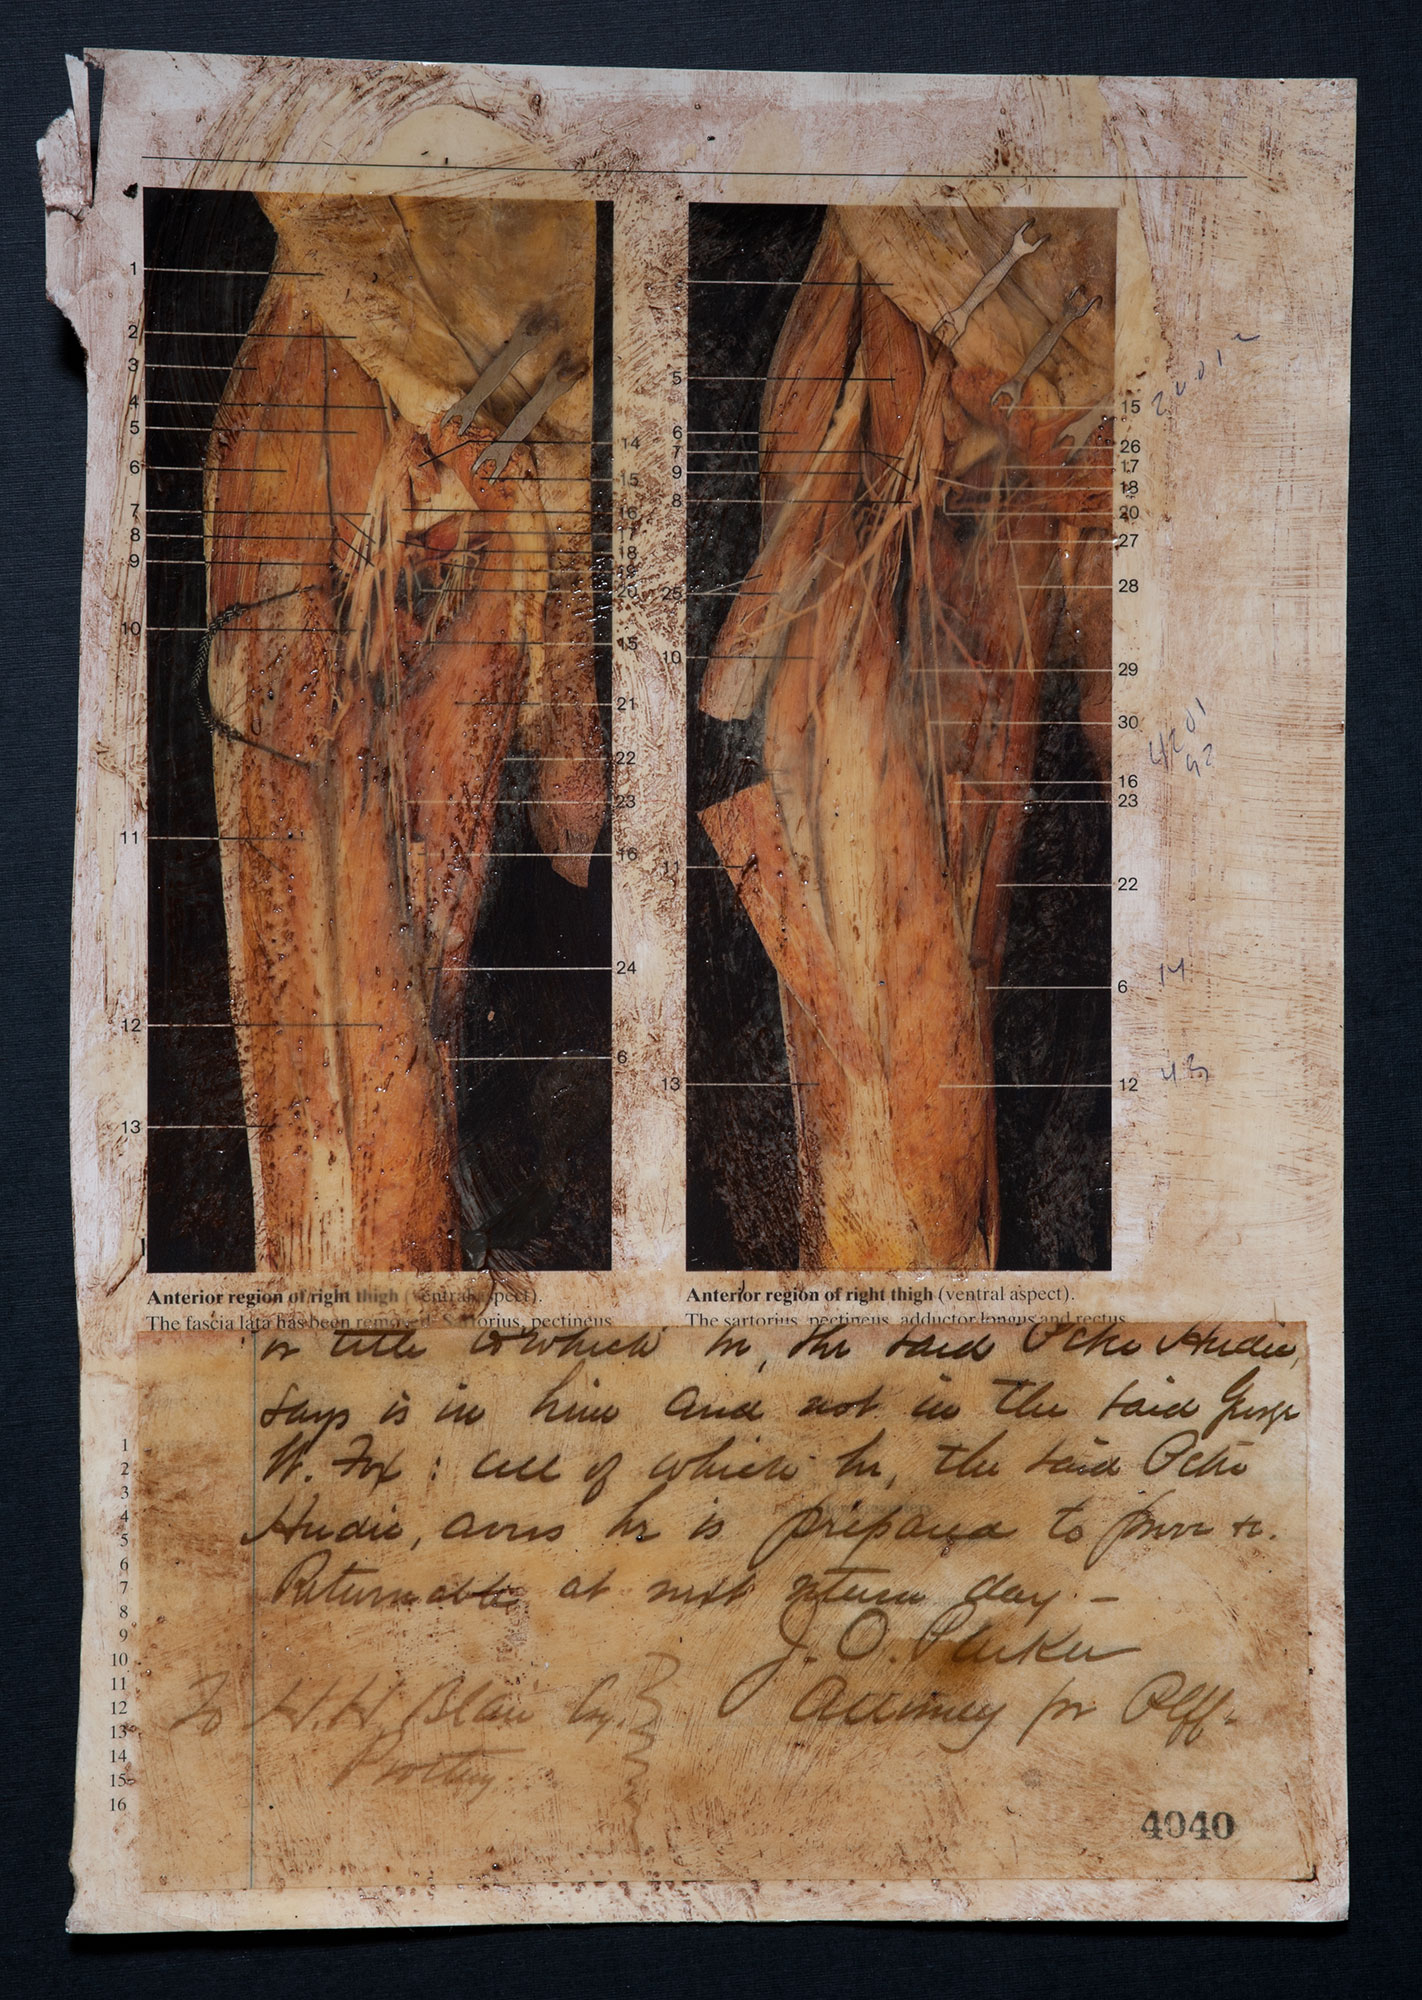 1
2
3
4
5
6
7
8
9
10
11
12
13
14
15
16
17
18
20
15
21
22
23
16
24
6
5
6
7
9
8
25
10
11
13
15
26
17
18
20
27
28
29
30
16
23
22
6
12
14
43
Anterior region of right thigh (ventral aspect).
The fascia lata has been removed. Sartorius, pectineus
Anterior region of right thigh (ventral aspect).
The sartorius, pectineus, adductor longus and rectus
or title to which he, the said
says is in him and not in the said George
W. Fox: all of which he, the said
avers he is prepared to prove &c.
Returnable at next return day –
J. O. Parker
Attorney for Plff.
To H. H. Blair Esq.
Prothy
1
2
3
4
5
6
7
8
9
10
11
12
13
14
15
16
4040